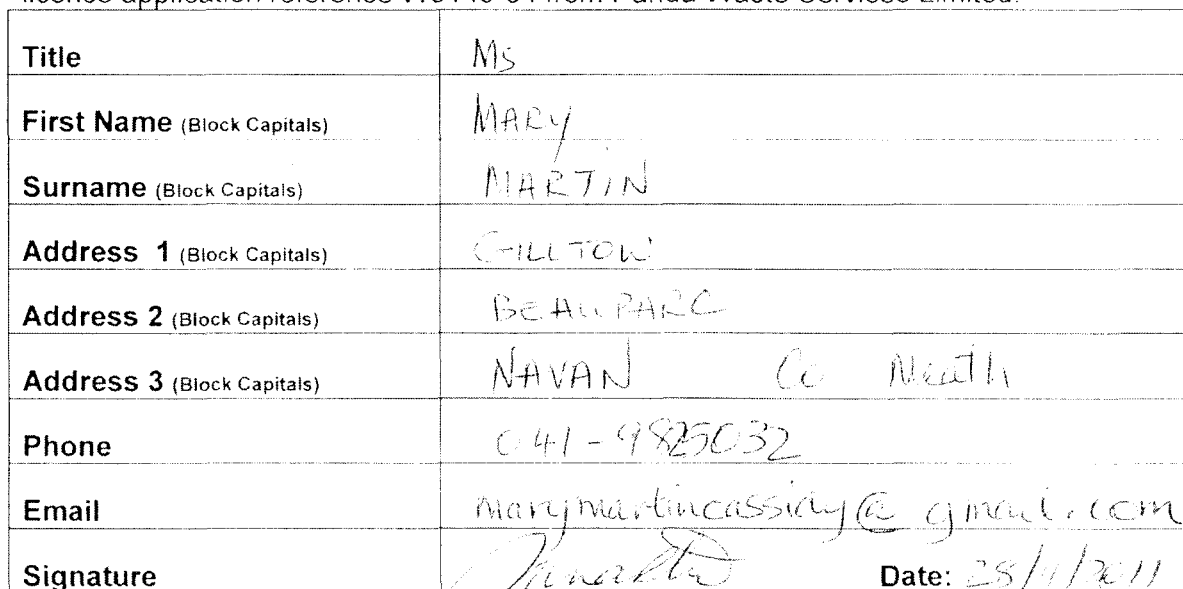 Title Ms
First Name (Block Capitals) MARY
Surname (Block Capitals) MARTIN
Address 1 (Block Capitals) GILLTOW
Address 2 (Block Capitals) BEAUPARC
Address 3 (Block Capitals) NAVAN Co Meath
Phone 041-9825032
Email marymartincassidy@gmail.com
Signature Date: 28/4/2011